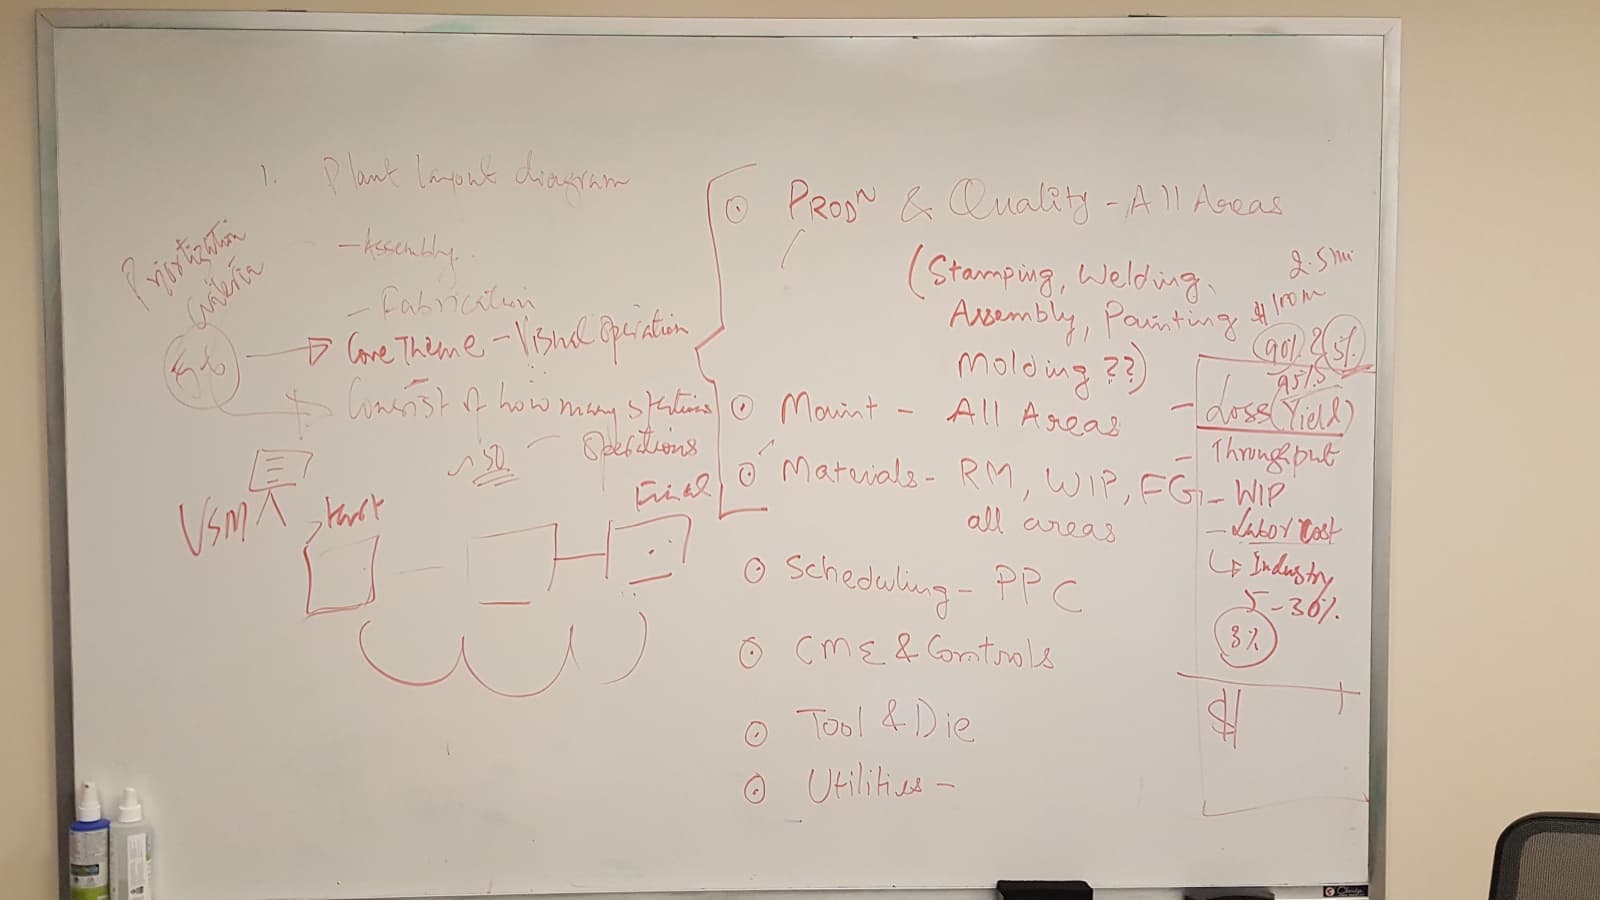 1. Plant Layout diagram
Prioritization
Criteria
- Assembly
- Fabrication
Core Theme - Visual Operation
Consist of how many stations
Operations
~ 50
VSM
Start
Final
PRODN & Quality - All Areas
(Stamping, Welding,
Assembly, Painting
Molding ??)
Maint - All Areas
Materials - RM, WIP, FG
all areas
Scheduling - PPC
CME & Controls
Tool & Die
Utilities -
2.5 mi
$100m
90% & 5%
95%
- Loss (Yield)
- Throughput
- WIP
- Labor Cost
Industry
5 - 30%
8%
$